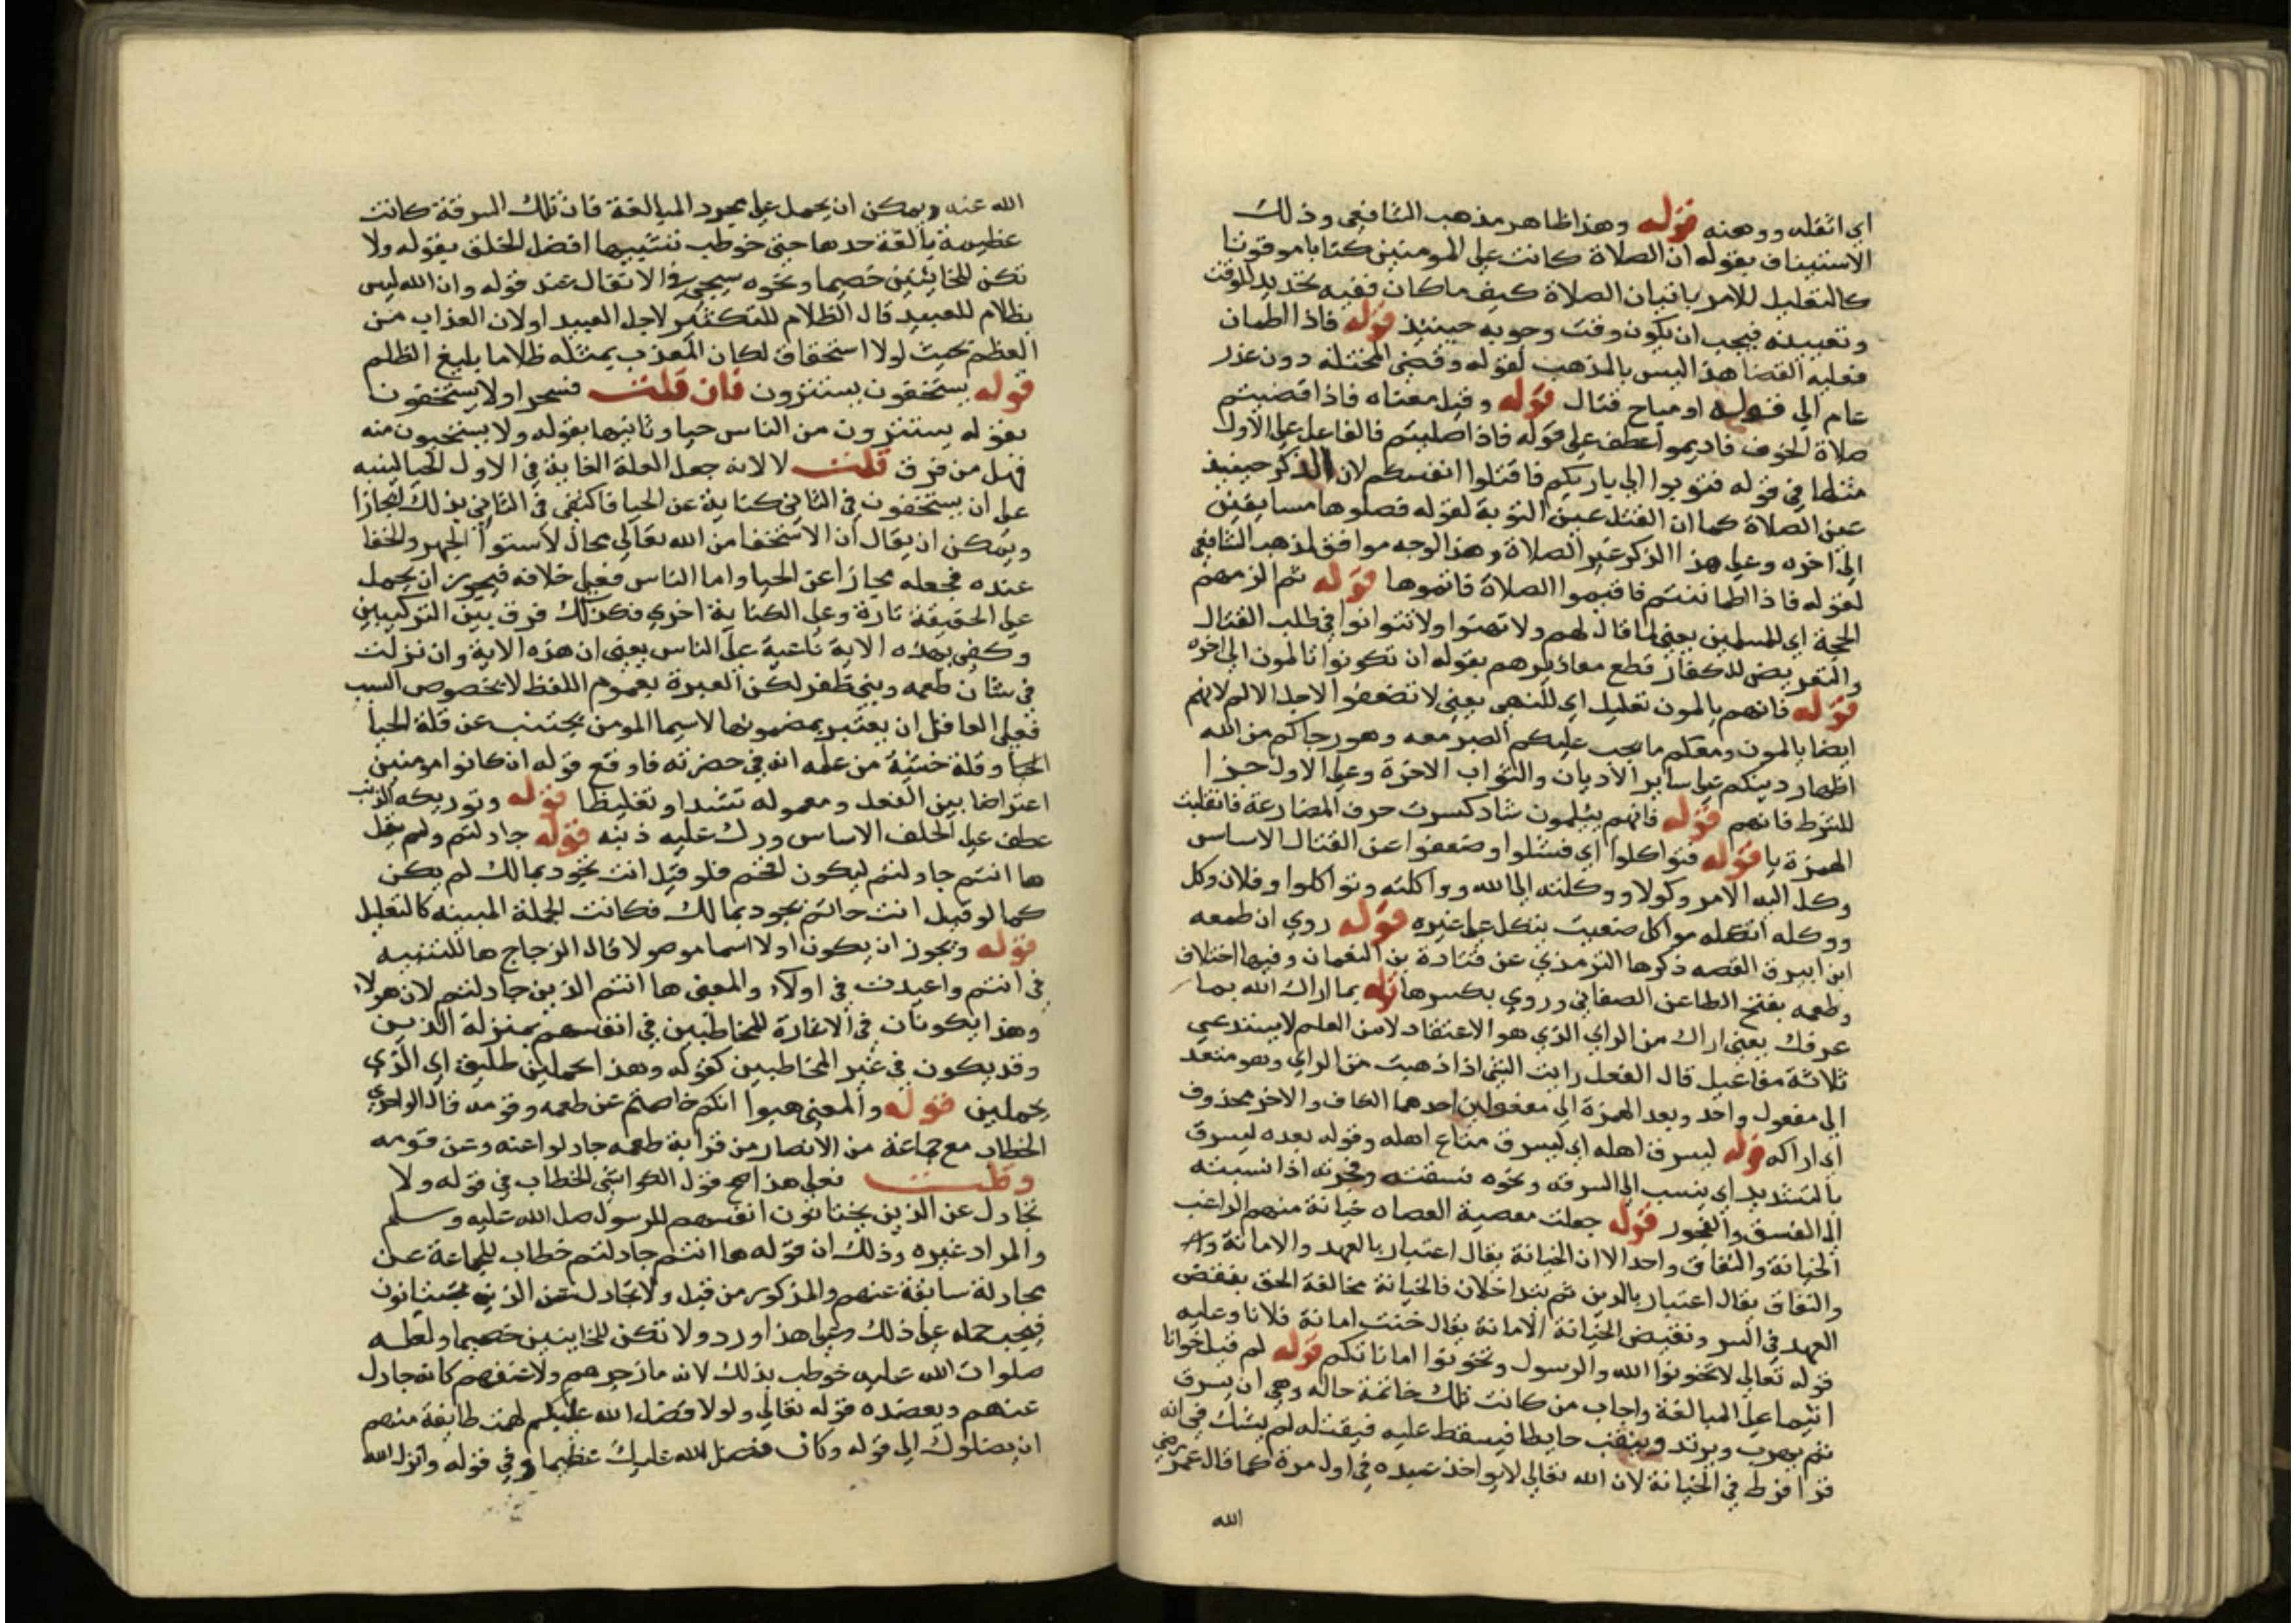 اي اثقله ووهنه قوله وهذا ظاهر مذهب الشافعي وذلك
الاستيناف بقوله ان الصلاة كانت على المومنين كتابا موقوتا
كالتعليل للامر باتيان الصلاة كيف ما كان ففيه تحديد للوقت
وتعيينه فيجب ان يكون وقت وجوبه حينيذ قوله فاذا اطمان
فعليه القضا هذا ليس بالمذهب لقوله وقضى المختلة دون عذر
عام الي قوله او مباح قتال قوله وقيل معناه فاذا قضيتم
صلاة الخوف فاديموا عطف على قوله فاذا صليتم فالفا على الاول
مثلها في قوله فتوبوا الي باريكم فاقتلوا انفسكم لان الذكر حينيذ
عين الصلاة كما ان القتل عين التوبة لقوله فصلوها مسايفين
الي اخره وعلى هذا الذكر غير الصلاة وهذا الوجه موافق لمذهب الشافعي
لقوله فاذا اطماننتم فاقيموا الصلاة فاتموها قوله ثم الزمهم
الحجة اي للمسلمين يعني لما قال لهم ولا تهنوا ولا تتوانوا في طلب القتال
والتعريض للكفار قطع معاذيرهم بقوله ان تكونوا تالمون الي اخره
قوله فانهم يالمون تعليل اي للنهي يعني لا تضعفوا لاجل الالم لانهم
ايضا يالمون ومعكم ما يجب عليكم الصبر معه وهو رجاكم من الله
اظهار دينكم على ساير الاديان والثواب الاخرة وعلى الاول جزا
للشرط فانهم قوله فانهم ييلمون شاد كسرت حرف المضارعة فانقلبت
الهمزة يا قوله فتواكلوا اي فشلوا وضعفوا عن القتال الاساس
وكل اليه الامر وكولا ووكلته الي الله وواكلته وتواكلوا وفلان وكل
ووكله تكله مواكل ضعيف يتكل على غيره قوله روي ان طعمه
ابن ابيرق القصه ذكرها الترمذي عن قتادة بن النعمان وفيها اختلاف
وطعمه بفتح الطا عن الصغاني وروي بكسرها قوله بما اراك الله بما
عرفك يعني اراك من الراي الذي هو الاعتقاد لا من العلم لا يستدعي
ثلاثة مفاعيل قال الفعل رايت الشي اذا ذهبت من الراي وهو متعد
الي مفعول واحد وبعد الهمزة الي مفعولين احدهما الكاف والاخر محذوف
اي اراكه قوله ليسرق اهله اي ليسرق متاع اهله وقوله بعده ليسرق
بالتشديد اي ينسب الي السرقه ونحوه فسقته وفجرته اذا نسبته
الي الفسق والفجور قوله جعلت معصية العصاه خيانة منهم الراغب
الخيانة والنفاق واحد الا ان الخيانة يقال اعتبار بالعهد والامانة
والنفاق يقال اعتبار بالدين ثم يتداخلان فالخيانة مخالفة الحق بنقض
العهد في السر ونقيض الخيانة الامانة يقال خنت امانة فلانا وعليه
قوله تعالي لا تخونوا الله والرسول وتخونوا اماناتكم قوله لم قيل خوانا
اثيما على المبالغة واجاب من كانت تلك خاتمة حاله وهي ان يسرق
ثم يهرب ويرتد وينقب حايطا فيسقط عليه فيقتله لم يشك في انه
قد افرط في الخيانة لان الله تعالي لا يواخذ عبده في اول مرة كما قال عمر رضي
الله
الله عنه ويمكن ان يحمل على مجرد المبالغة فان تلك السرقة كانت
عظيمة بالغة حدها حتى خوطب بسببها افضل الخلق بقوله ولا
تكن للخاينين خصيما ونحوه سيجي في الانفال عند قوله وان الله ليس
بظلام للعبيد قال الظلام للتكثير لاجل العبيد او لان العذاب من
العظم بحيث لولا استحقاق لكان المعذب بمثله ظلاما بليغ الظلم
قوله يستخفون يستترون فان قلت فسر اولا يستخفون
بقوله يستترون من الناس حيا وثانيها بقوله ولا يستحيون منه
فهل من فرق قلت لا لانه جعل العلة الغاية في الاول الحيا لينبه
على ان يستخفون في الثاني كناية عن الحيا فاكتفى في الثاني بذلك ايجازا
ويمكن ان يقال ان الاستخفا من الله تعالي محال لاستوا الجهر والخفا
عنده فجعله مجازا عن الحيا واما الناس فعلى خلافه فيجوز ان يحمل
على الحقيقة تارة وعلى الكناية اخري فكن لك فرق بين التركيبين
وكفى بهذه الاية ناعية على الناس يعني ان هذه الاية وان نزلت
في شان طعمه وبني ظفر لكن العبرة بعموم اللفظ لا بخصوص السبب
فعلى العاقل ان يعتبر بمضمونها لا سيما المومن يجتنب عن قلة الحيا
الحيا وقلة خشية من علمه انه في حضرته فاوقع قوله ان كانوا مومنين
اعتراضا بين الفعل ومعموله تشددا وتغليظا قوله وتوريكه الذنب
عطف على الحلف الاساس ورك عليه ذنبه قوله جادلتم ولم يقل
ها انتم جادلتم ليكون لختم فلو قيل انت تجود بمالك لم يكن
كما لو قيل انت حاتم تجود بمالك فكانت الجملة المبينه كالتعليل
قوله ويجوز ان يكون اولا اسما موصولا قال الزجاج ها للتنبيه
في انتم واعيدت في اولاء والمعنى ها انتم الذين جادلتم لان هولاء
وهذا يكونان في الاشارة للمخاطبين في انفسهم بمنزلة الذين
وقد يكون في غير المخاطبين كقوله وهذا تحملين طليق اي الذي
تحملين قوله والمعنى هبوا انكم خاصمتم عن طعمه وقومه قال الواحدي
الخطاب مع جماعة من الانصار من قرابة طعمه جادلوا عنه وعن قومه
وقلت فعلى هذا صح قول الكواشي الخطاب في قوله ولا
تجادل عن الذين يختانون انفسهم للرسول صلى الله عليه وسلم
والمراد غيره وذلك ان قوله ها انتم جادلتم خطاب للجماعة عن
مجادلة سابقة عنهم والمذكور من قبل ولا تجادل عن الذين يختانون
فيجب حمله على ذلك وعلى هذا ورد ولا تكن للخاينين خصيما ولعله
صلوات الله عليه خوطب بذلك لانه ما زجرهم ولا عنفهم كانه جادل
عنهم ويعضده قوله تعالي ولولا فضل الله عليكم لهمت طايفة منهم
ان يضلوك الي قوله وكان فضل الله عليك عظيما وفي قوله وانزل الله